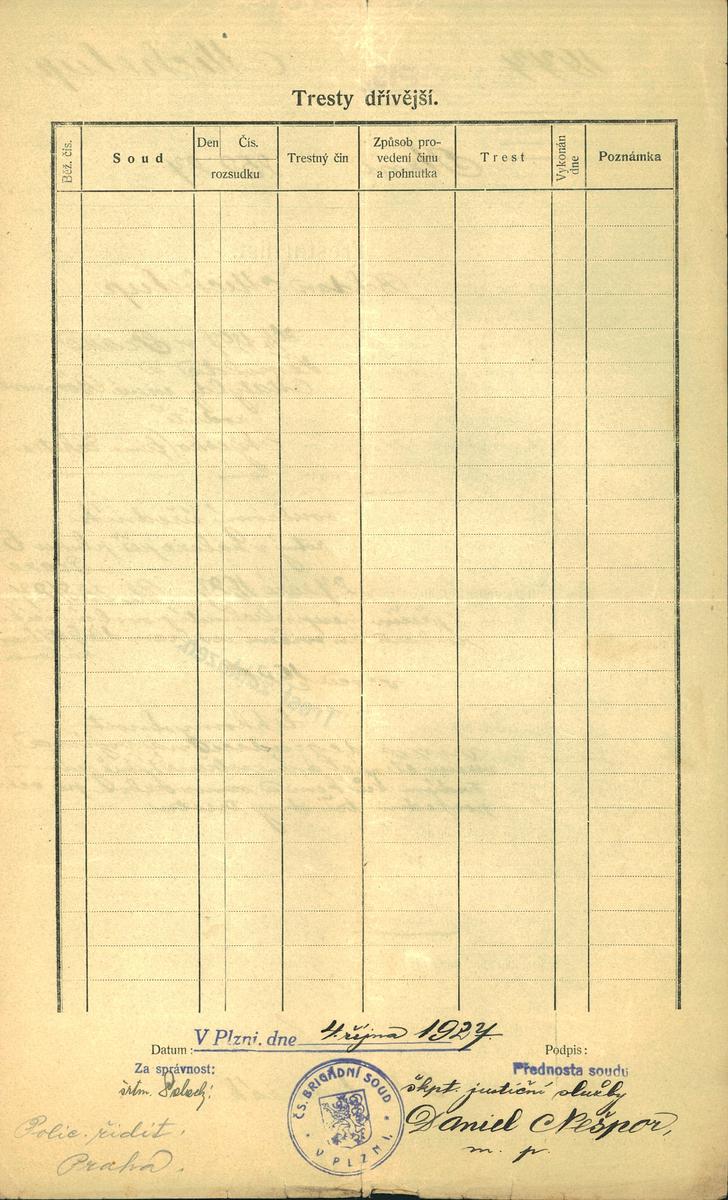 Tresty dřívější.
Běž. čís.
Soud
Den
Čís.
rozsudku
Trestný čin
Způsob pro-
vedení činu
a pohnutka
Trest
Vykonán
dne
Poznámka
Datum: V Plzni. dne 4. října 1927
Podpis:
Za správnost:
Přednosta soudu
škpt. justiční služby
Daniel Nešpor,
m. p.
ČS. BRIGÁDNÍ SOUD
V PLZNI.
Polic. ředit.
Praha.